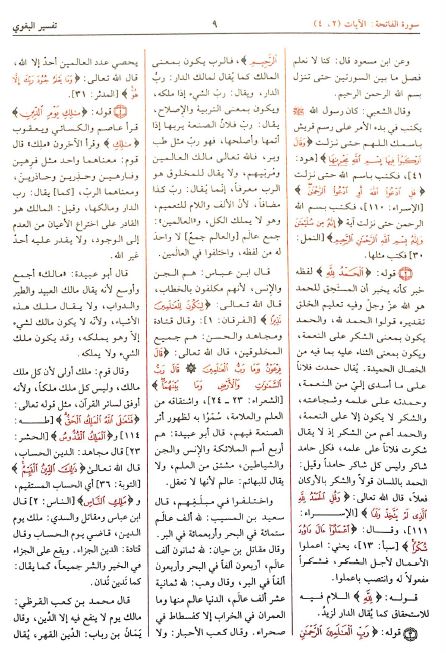 سورة الفاتحة: الآيات (٢ ، ٤)
٩
تفسير البغوي
وعن ابن مسعود قال: كنا لا نعلم
فصل ما بين السورتين حتى نزل
بسم الله الرحمن الرحيم.
وقال الشعبي: كان رسول الله ﷺ
يكتب في بدء الأمر على رسم قريش
باسمك اللهم حتى نزلت
﴿ارْكَبُوا فِيهَا بِسْمِ اللَّهِ مَجْرِيهَا﴾ [هود:
٤١]، فكتب باسم الله حتى نزلت
﴿قُلِ ادْعُوا اللَّهَ أَوِ ادْعُوا الرَّحْمَٰنَ﴾
[الإسراء: ١١٠]، فكتب بسم الله
الرحمن حتى نزلت آية ﴿إِنَّهُ مِن سُلَيْمَانَ
وَإِنَّهُ بِسْمِ اللَّهِ الرَّحْمَٰنِ الرَّحِيمِ﴾ [النمل:
٣٠] فكتب مثلها.
قوله: ﴿الْحَمْدُ لِلَّهِ﴾ لفظه
خبر كأنه يخبر أن المستحق للحمد
هو الله عزّ وجلّ وفيه تعليم الخلق
تقديره قولوا الحمد لله، والحمد
يكون بمعنى الشكر على النعمة،
ويكون بمعنى الثناء عليه بما فيه من
الخصال الحميدة. يُقال حمدت فلاناً
على ما أسدى إليّ من النعمة،
وحمدته على علمه وشجاعته،
والشكر لا يكون إلا على النعمة،
والحمد أعم من الشكر إذ لا يقال
شكرت فلاناً على علمه، فكل حامد
شاكر وليس كل شاكر حامداً وقيل:
الحمد باللسان قولاً والشكر بالأركان
فعلاً، قال الله تعالى: ﴿وَقُلِ الْحَمْدُ لِلَّهِ
الَّذِي لَمْ يَتَّخِذْ وَلَدًا﴾ [الإسراء:
١١١]، وقال: ﴿اعْمَلُوا آلَ دَاوُودَ
شُكْرًا﴾ [سبأ: ١٣]، يعني: اعملوا
الأعمال لأجل الشكر، فشكراً
مفعولاً له وانتصب باعملوا.
قوله: ﴿لِلَّهِ﴾ اللام فيه
للاستحقاق كما يقال الدار لزيدٌ.
قوله: ﴿رَبِّ الْعَالَمِينَ الرَّحْمَٰنِ
الرَّحِيمِ﴾، فالرب يكون بمعنى
المالك كما يُقال لمالك الدار: ربُّ
الدار، ويقال: ربّ الشيء إذا ملكه،
ويكون بمعنى التربية والإصلاح،
يقال: ربَّ فلانٌ الصنعة يربها إذا
أتمها وأصلحها، فهو ربّ مثل طب
وبر، فالله تعالى مالك العالمين
ومُربّيهم، ولا يقال للمخلوق هو
الرب معرفاً، إنما يُقال: ربّ كذا
مضافاً، لأن الألف واللام للتعميم،
وهو لا يملك الكل، و﴿العالمين﴾:
جمع عالم [والعالم جمعٌ] لا واحد
له من لفظه، واختلفوا في العالمين.
قال ابن عباس: هم الجن
والإنس، لأنهم مكلفون بالخطاب،
قال الله تعالى: ﴿لِيَكُونَ لِلْعَالَمِينَ
نَذِيرًا﴾ [الفرقان: ١]، وقال قتادة
ومجاهد والحسن: هم جميع
المخلوقين، قال الله تعالى: ﴿قَالَ
فِرْعَوْنُ وَمَا رَبُّ الْعَالَمِينَ قَالَ رَبُّ
السَّمَاوَاتِ وَالْأَرْضِ وَمَا بَيْنَهُمَا﴾
[الشعراء: ٢٣ - ٢٤]، واشتقاقه من
العلم والعلامة، سُمّوا به لظهور أثر
الصنعة فيهم، قال أبو عبيدة: هم
أربع أمم الملائكة والإنس والجن
والشياطين، مشتق من العلم، ولا
يقال للبهائم: عالم لأنها لا تعقل.
واختلفوا في مبلغهم، قال
سعيد بن المسيب: لله ألف عالم
ستمائة في البحر وأربعمائة في البر.
وقال مقاتل بن حيان: لله ثمانون ألف
عالم، أربعون ألفاً في البحر وأربعون
ألفاً في البر، وقال وهب: لله ثمانية
عشر ألف عالم، الدنيا عالم منها وما
العمران في الخراب إلا كفسطاط في
صحراء. وقال كعب الأحبار: ولا
يحصي عدد العالمين أحدٌ إلا الله،
قال الله تعالى: ﴿وَمَا يَعْلَمُ جُنُودَ رَبِّكَ إِلَّا
هُوَ﴾ [المدثر: ٣١].
قوله: ﴿مَالِكِ يَوْمِ الدِّينِ﴾
قرأ عاصم والكسائي ويعقوب
﴿مَالِكِ﴾ وقرأ الآخرون «ملك» قال
قوم: معناهما واحد مثل فرهين
وفارهين وحذرين وحاذرين،
ومعناهما الربّ، [كما] يقال: رب
الدار ومالكها، وقيل: المالك هو
القادر على اختراع الأعيان من العدم
إلى الوجود، ولا يقدر عليه أحدٌ
غير الله.
قال أبو عبيدة: «مالك» أجمع
وأوسع لأنه يقال مالك العبيد والطير
والدواب، ولا يقال ملك هذه
الأشياء، ولأنه لا يكون مالك لشيء
إلا وهو يملكه، وقد يكون ملك
الشيء ولا يملكه.
وقال قوم: ملك أولى لأن كل ملك
مالك، وليس كل مالك ملكاً، ولأنه
أوفق لسائر القرآن، مثل قوله تعالى:
﴿فَتَعَالَى اللَّهُ الْمَلِكُ الْحَقُّ﴾ [طه:
١١٤] و﴿الْمَلِكُ الْقُدُّوسُ﴾ [الحشر:
٢٣] قال مجاهد: الدين الحساب،
قال الله تعالى: ﴿ذَٰلِكَ الدِّينُ الْقَيِّمُ﴾
[التوبة: ٣٦] أي الحساب المستقيم،
و﴿مَلِكِ النَّاسِ﴾ [الناس: ٢] قال
ابن عباس ومقاتل والسدي: ملك يوم
الدين، قاضي يوم الحساب وقال
قتادة: الدين الجزاء. ويقع على الجزاء
في الخير والشر جميعاً، كما يقال:
كما تَدين تُدان.
قال محمد بن كعب القرظي:
مالك يوم لا ينفع فيه إلا الدِّين، وقال
يَمَانُ بن رباب: الدّين القهر، يقال